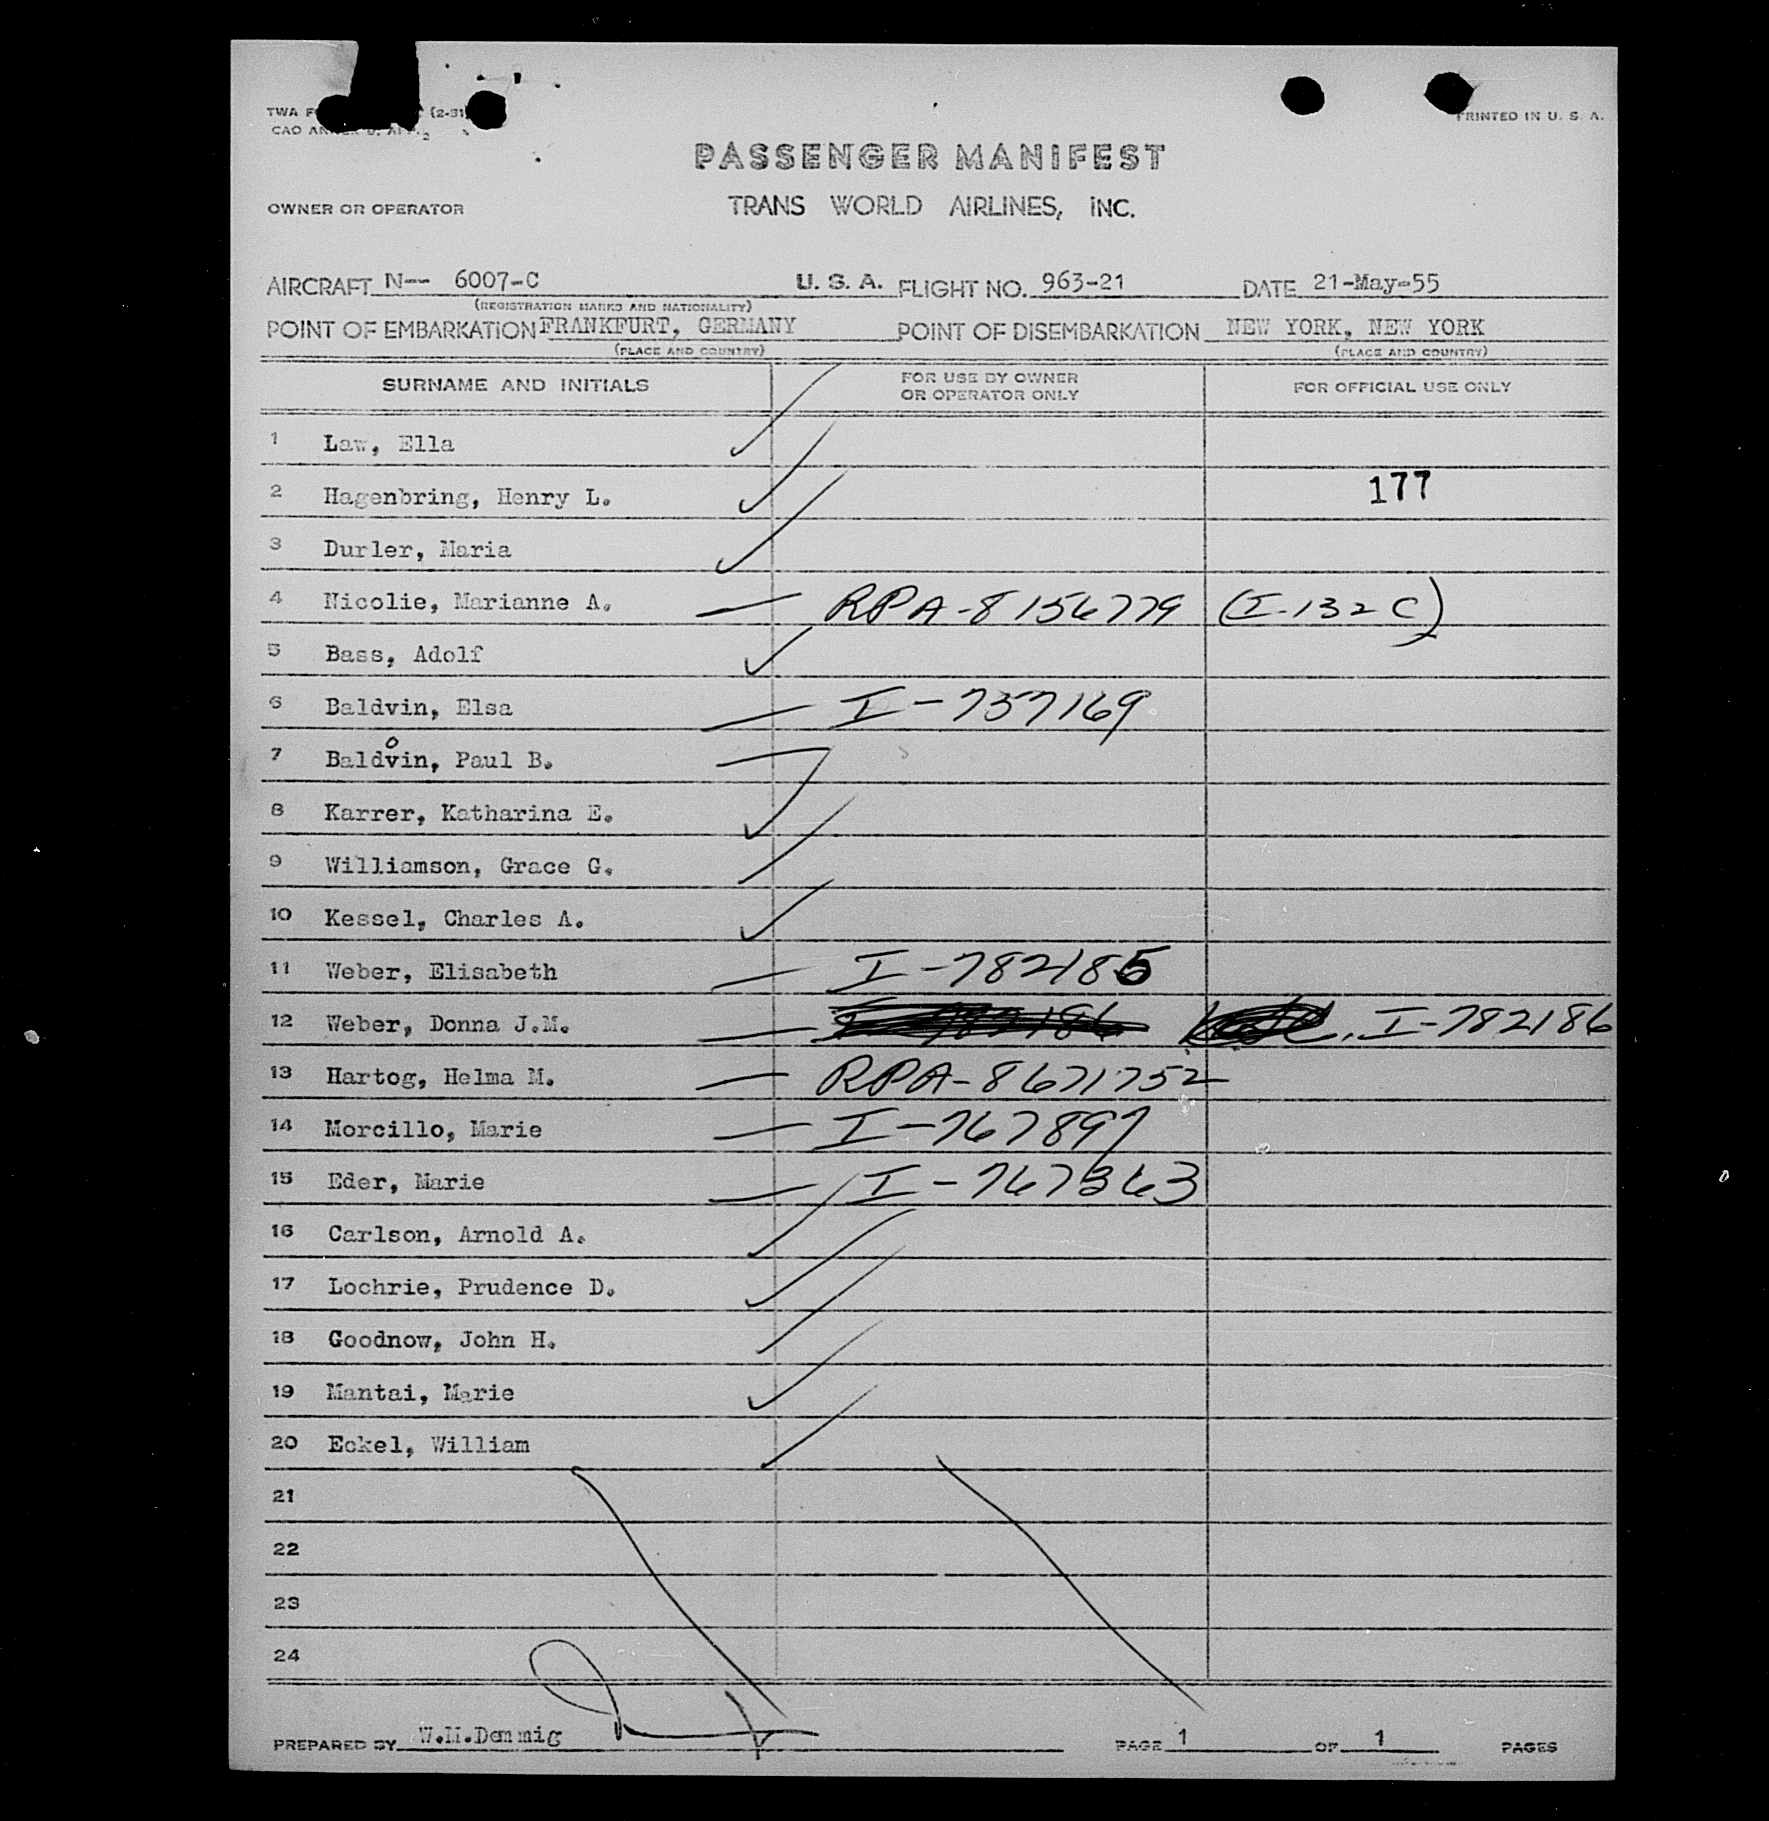 TWA F (2-51)
CAO ANNEX
PRINTED IN U. S. A.
PASSENGER MANIFEST
OWNER OR OPERATOR TRANS WORLD AIRLINES, INC.
AIRCRAFT N-- 6007-C U. S. A. FLIGHT NO. 963-21 DATE 21-May-55
(REGISTRATION MARKS AND NATIONALITY)
POINT OF EMBARKATION FRANKFURT, GERMANY POINT OF DISEMBARKATION NEW YORK, NEW YORK
(PLACE AND COUNTRY) (PLACE AND COUNTRY)
SURNAME AND INITIALS FOR USE BY OWNER OR OPERATOR ONLY FOR OFFICIAL USE ONLY
1 Law, Ella
2 Hagenbring, Henry L. 177
3 Durler, Maria
4 Nicolie, Marianne A. RPA-8156779 (I-132C)
5 Bass, Adolf
6 Baldvin, Elsa I-737169
7 Baldovin, Paul B.
8 Karrer, Katharina E.
9 Williamson, Grace G.
10 Kessel, Charles A.
11 Weber, Elisabeth I-782185
12 Weber, Donna J.M. I-782186
13 Hartog, Helma M. RPA-8671752
14 Morcillo, Marie I-767897
15 Eder, Marie I-767363
16 Carlson, Arnold A.
17 Lochrie, Prudence D.
18 Goodnow, John H.
19 Mantai, Marie
20 Eckel, William
21
22
23
24
PREPARED BY W.M.Demmig PAGE 1 OF 1 PAGES